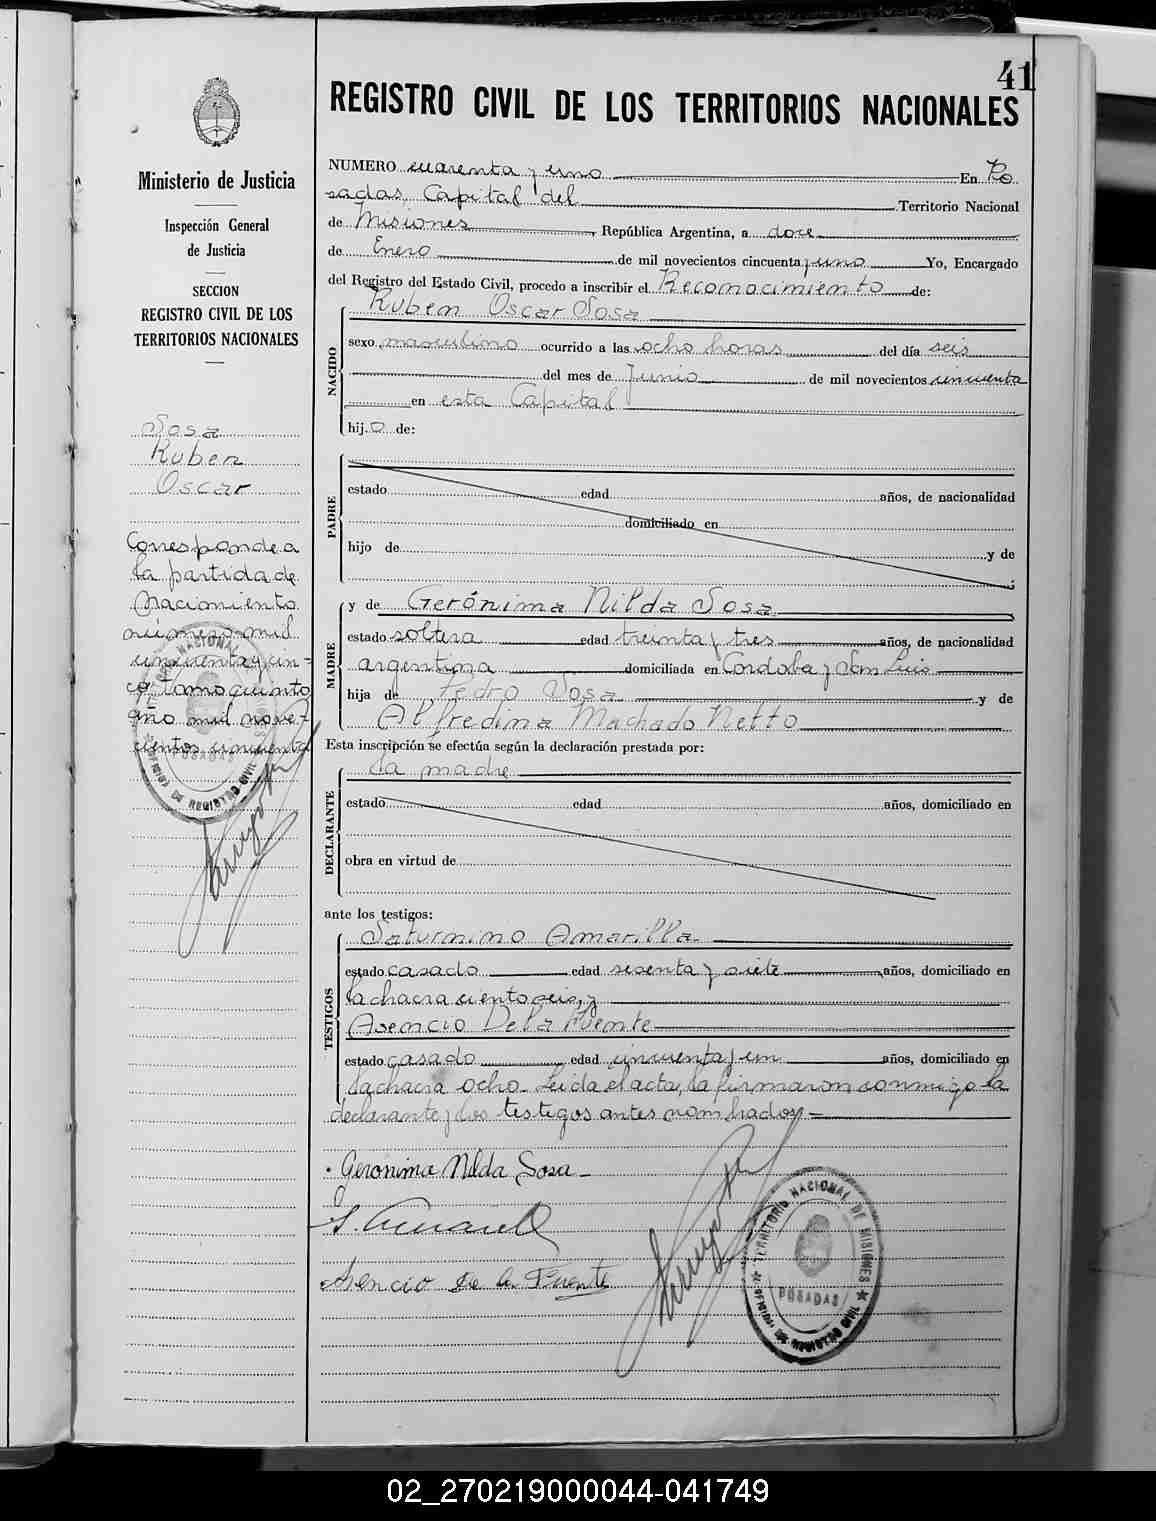 41
REGISTRO CIVIL DE LOS TERRITORIOS NACIONALES
Ministerio de Justicia
Inspección General
de Justicia
SECCION
REGISTRO CIVIL DE LOS
TERRITORIOS NACIONALES
Sosa
Ruben
Oscar
Corresponde a
la partida de
Nacimiento
número mil
cincuenta y cin-
co tomo quinto
año mil nove-
cientos cincuenta
NUMERO cuarenta y uno En Po
sadas Capital del Territorio Nacional
de Misiones, República Argentina, a doce
de Enero de mil novecientos cincuenta y uno Yo, Encargado
del Registro del Estado Civil, procedo a inscribir el Reconocimiento de:
NACIDO
Ruben Oscar Sosa
sexo masculino ocurrido a las ocho horas del día seis
del mes de Junio de mil novecientos cincuenta
en esta Capital
hijo de:
PADRE
estado edad años, de nacionalidad
domiciliado en
hijo de y de
;
MADRE
y de Gerónima Nilda Sosa
estado soltera edad treinta y tres años, de nacionalidad
argentina domiciliada en Cordoba y San Luis
hija de Pedro Sosa y de
Alfredina Machado Netto
Esta inscripción se efectúa según la declaración prestada por:
DECLARANTE
la madre
estado edad años, domiciliado en
obra en virtud de
ante los testigos:
TESTIGOS
Saturnino Amarilla
estado casado edad sesenta y siete años, domiciliado en
la chacra ciento seis, y
Asencio De la Fuente
estado casado edad cincuenta y un años, domiciliado en
la chacra ocho. Leida el acta, la firmaron conmigo la
declarante y los testigos antes nombrados.-
Geronima Nilda Sosa-
Asencio De la Fuente
TERRITORIO NACIONAL DE MISIONES
POSADAS
OFICINA DE REGISTRO CIVIL
02_270219000044-041749